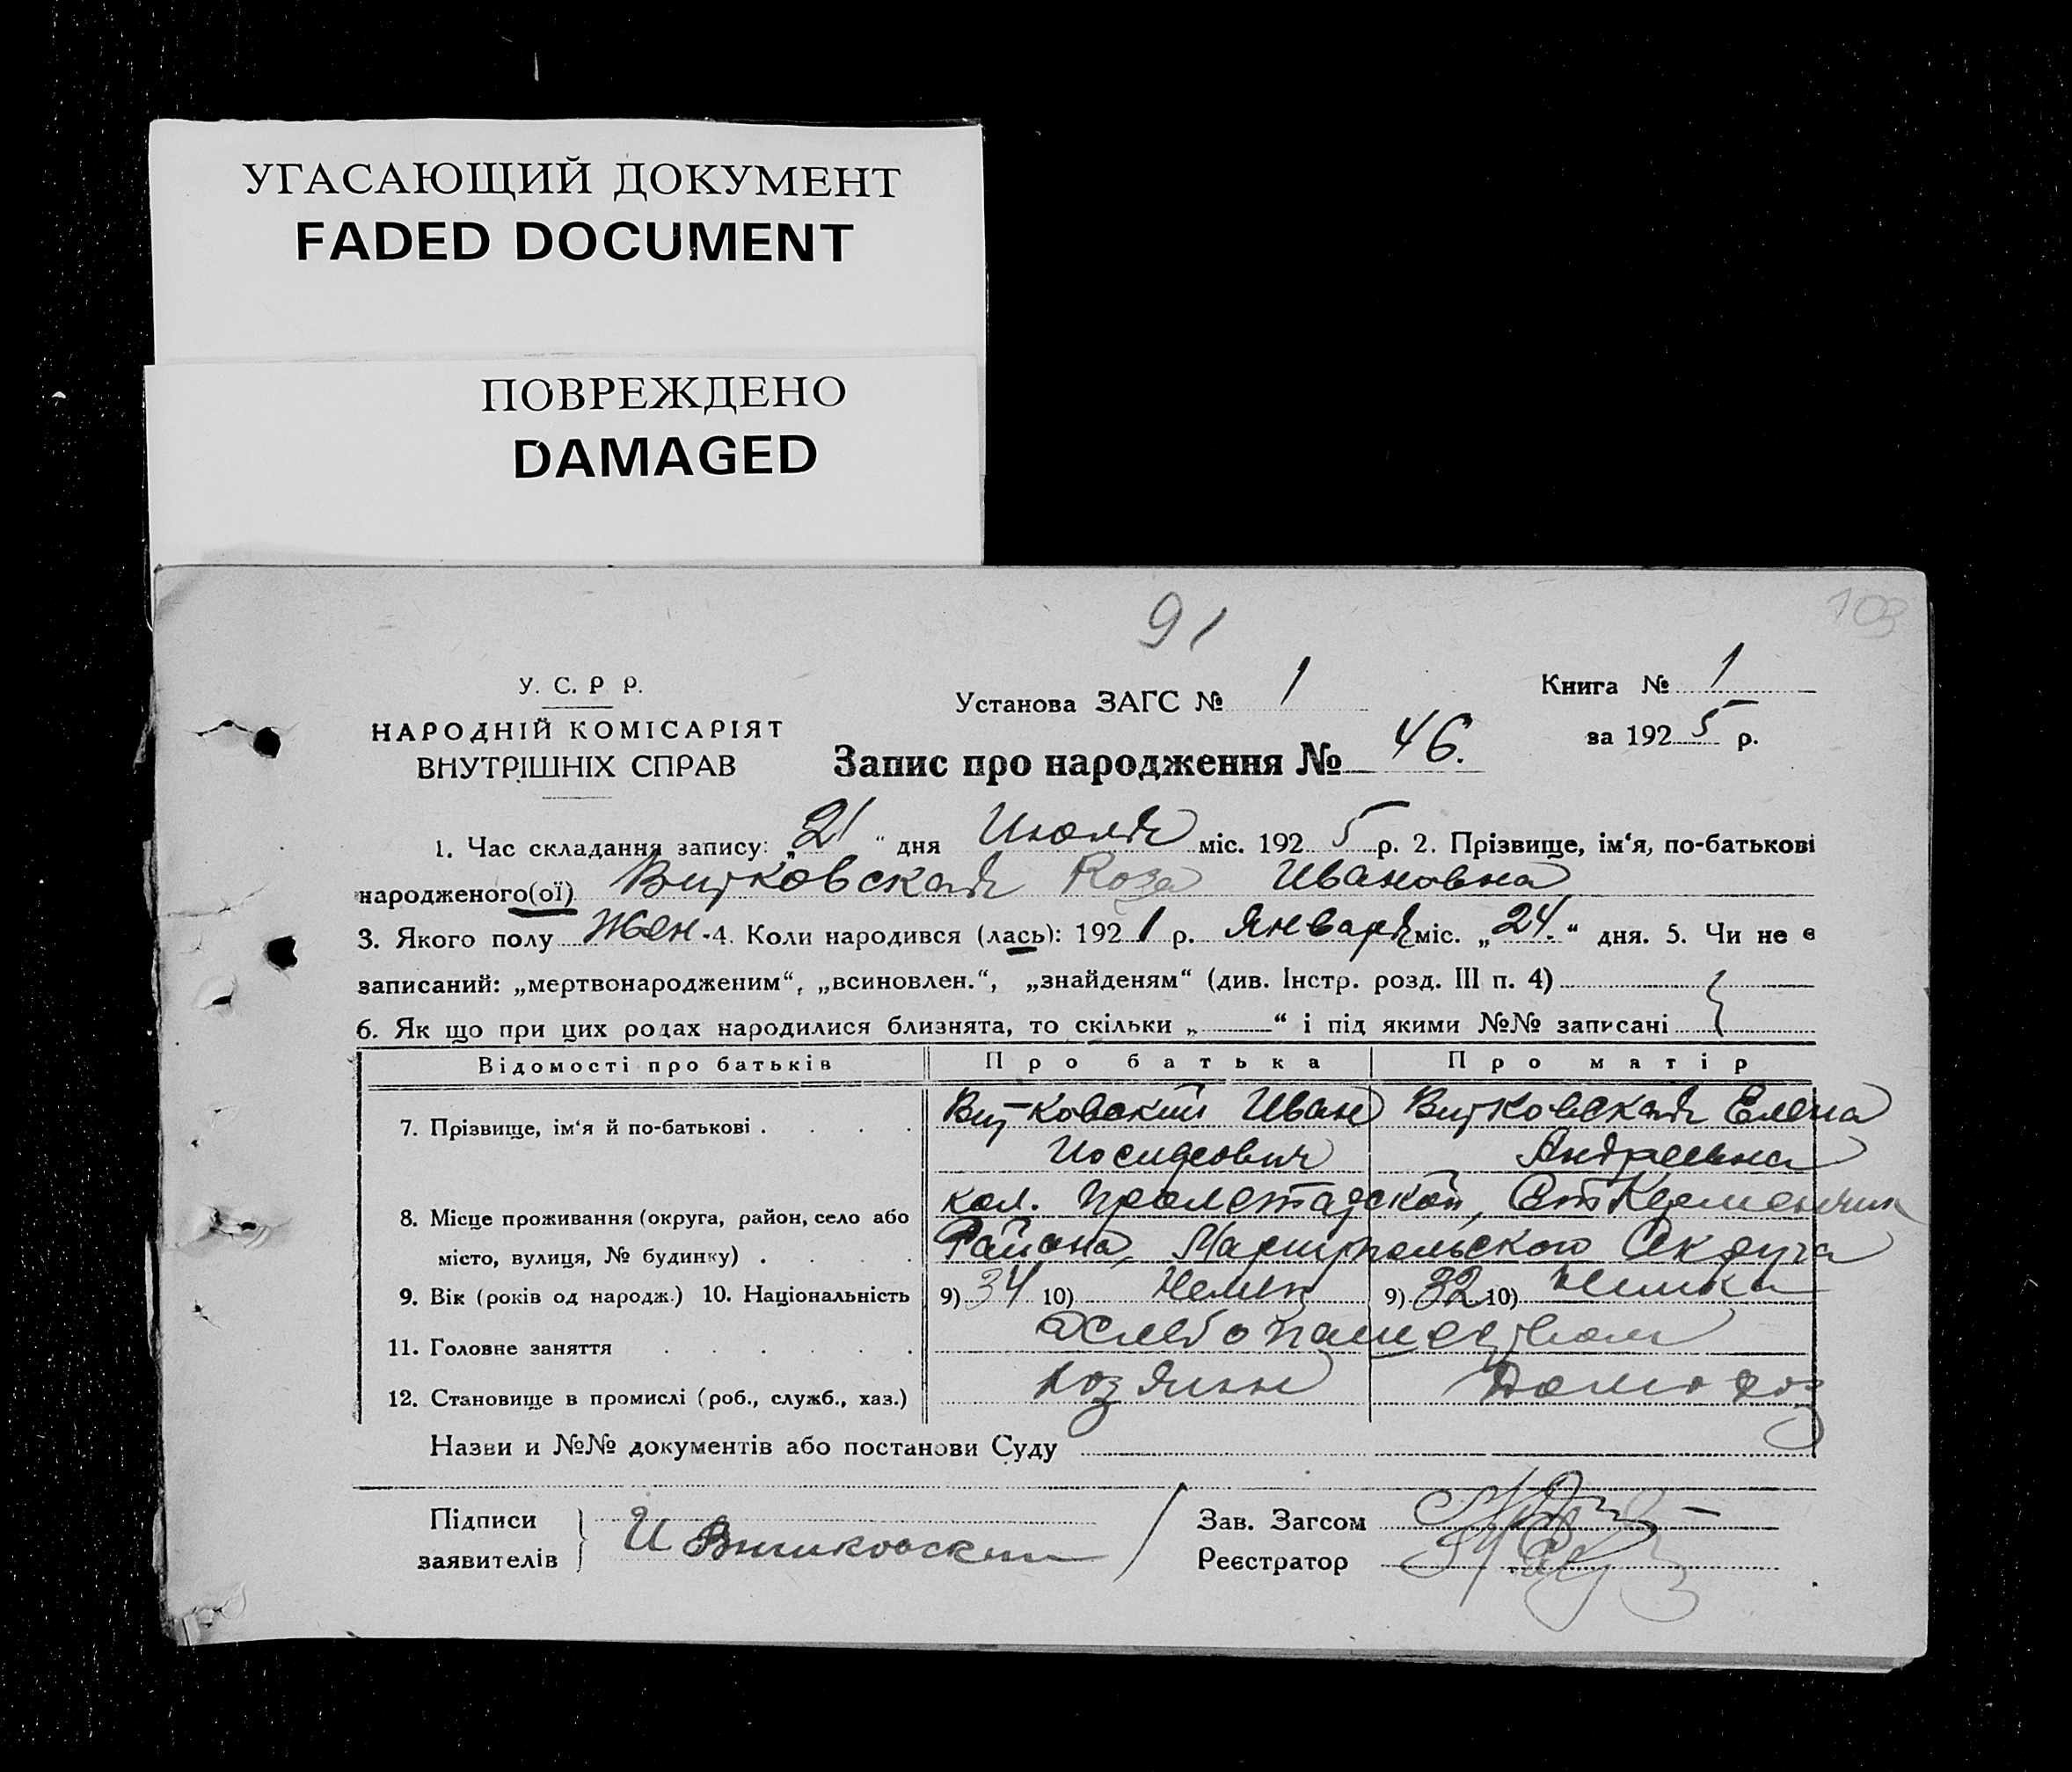 УГАСАЮЩИЙ ДОКУМЕНТ
FADED DOCUMENT
ПОВРЕЖДЕНО
DAMAGED
91
103
У. С. Р Р.
НАРОДНІЙ КОМІСАРІЯТ
ВНУТРІШНІХ СПРАВ
Установа ЗАГС № 1
Книга № 1
за 1925 р.
Запис про народження № 46.
1. Час складання запису: „21“ дня Июля міс. 1925 р. 2. Прізвище, ім‘я, по-батькові
народженого(ої) Витковская Роза Ивановна
3. Якого полу Жен. 4. Коли народився (лась): 1921 р. Января міс. „24.“ дня. 5. Чи не є
записаний: „мертвонародженим“, „всиновлен.“, „знайденям“ (див. Інстр. розд. III п. 4)
6. Як що при цих родах народилися близнята, то скільки „ “ і під якими №№ записані
Відомості про батьків Про батька Про матір
7. Прізвище, ім‘я й по-батькові . . . . Витковский Иван Витковская Елена
Иосифович Андреевна
8. Місце проживання (округа, район, село або кол. Пролетарской, Ст Керменчик
місто, вулиця, № будинку) . . . . Района, Мариупольского Округа
9. Вік (років од народж.) 10. Національність 9) 34 10) Немец 9) 32 10) Немка
11. Головне заняття . . . . . . Хлебопашеством
12. Становище в промислі (роб., служб., хаз.) хозяин Домохоз
Назви и №№ документів або постанови Суду
Підписи
заявителів И Витковский
Зав. Загсом
Реєстратор